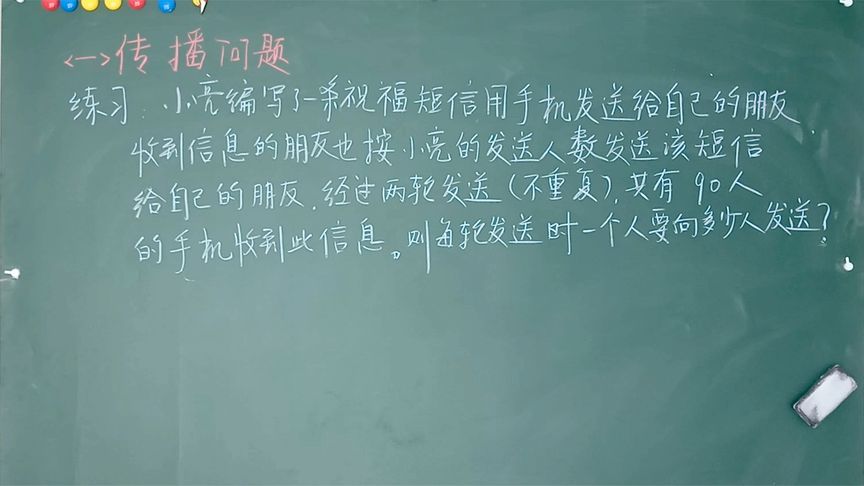 <一>传播问题
练习:小亮编写了一条祝福短信用手机发送给自己的朋友
收到信息的朋友也按小亮的发送人数发送该短信
给自己的朋友.经过两轮发送(不重复),共有90人
的手机收到此信息。则每轮发送时一个人要向多少人发送?